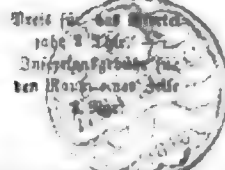 Preis für das Viertel-
jahr 1 Thlr.
Insertionsgebühr für
den Raum einer Zeile